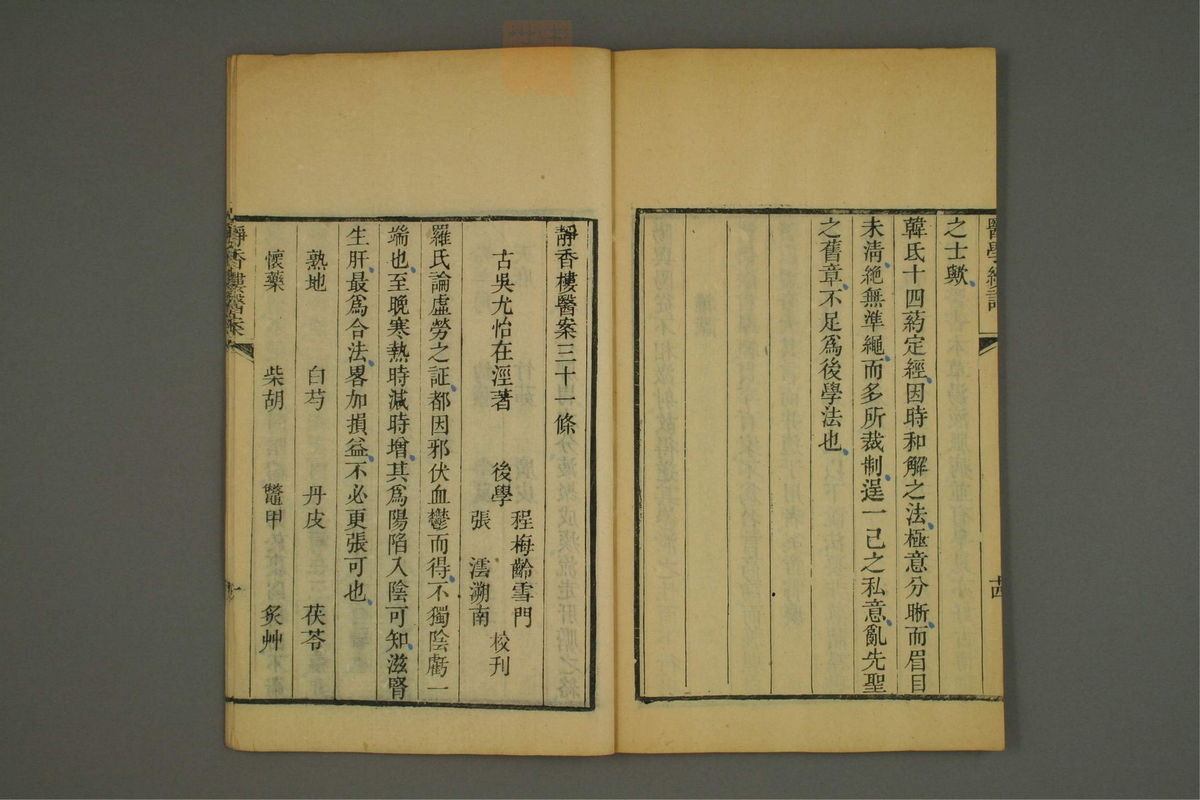 之士歟
韓氏十四葯定經因時和解之法極意分晰而眉目
未淸絶無準繩而多所裁制逞一己之私意亂先聖
之舊章不足爲後學法也
靜香樓醫案三十一條
古吳尤怡在涇著 後學 程梅齡雪門 張 澐溯南 校刊
羅氏論虛勞之証都因邪伏血鬱而得不獨陰虧一
端也至晚寒熱時減時增其爲陽陷入陰可知滋腎
生肝最爲合法畧加損益不必更張可也
熟地 白芍 丹皮 茯苓
懷藥 柴胡 鼈甲 炙艸
靜香樓醫案